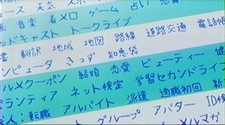 ース 天気
音楽 着メロ ゲーム 占い 恋愛
ッドキャスト トークライブ
翻訳 地域 地図 路線 道路交通 電話帳
ンピュータ きっず 知恵袋
ルメクーポン 結婚 恋愛 ビューティー 健
ランティア ネット検定 学習セカンドライフ
人:転職 アルバイト 派遣 適職 初回
グループ アバター ID